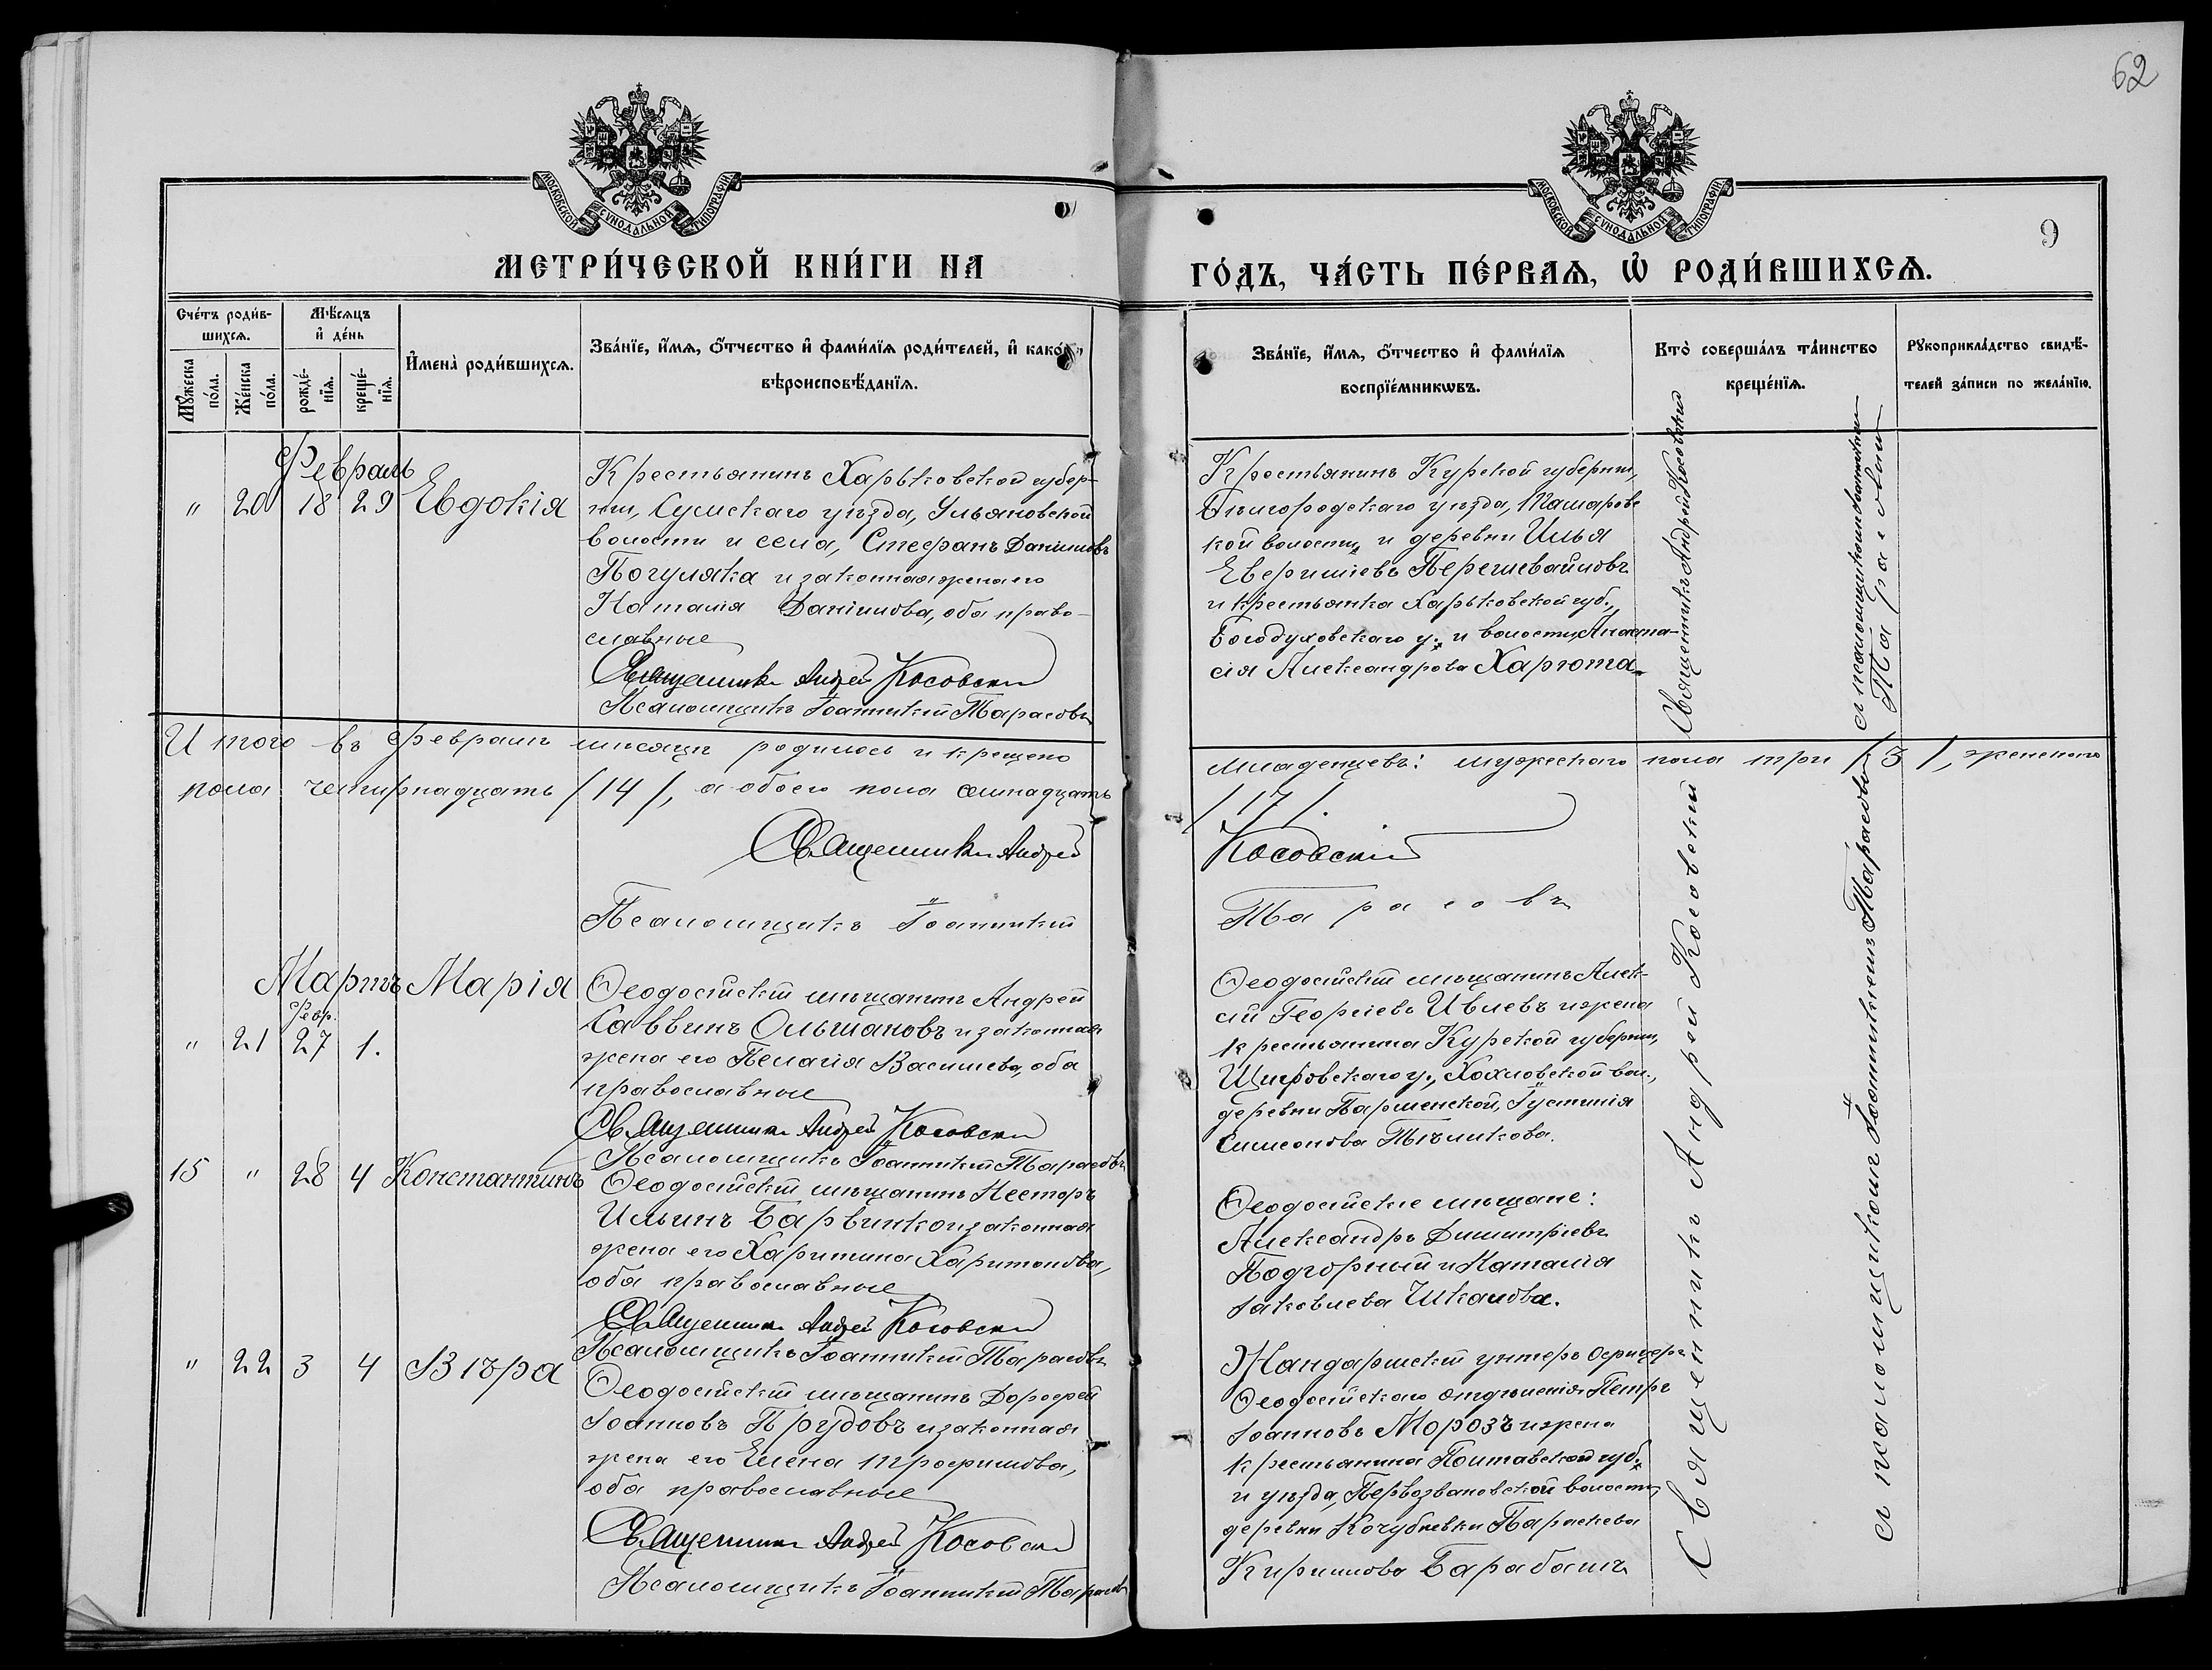 62
МОСКОВСКОЙ СУНОДАЛЬНОЙ ТИПОГРАФІИ
МОСКОВСКОЙ СУНОДАЛЬНОЙ ТИПОГРАФІИ
9
МЕТРИ́ЧЕСКОЙ КНИ́ГИ НА
ГО́ДЪ, ЧА́СТЬ ПЕ́РВАѦ, Ѡ҆ РОДИ́ВШИХСѦ.
Сче́тъ роди́в-
шихсѧ.
Мꙋ́жеска по́ла.
Же́нска по́ла.
Мѣ́сѧцъ
и҆ де́нь
рожде́-
нїѧ.
креще́-
нїѧ.
И҆мена̀ роди́вшихсѧ.
Зва́нїе, и҆́мѧ, ѻ҆́тчество и҆ фами́лїѧ роди́телей, и҆ како́гѡ
вѣроисповѣ́данїѧ.
Зва́нїе, и҆́мѧ, ѻ҆́тчество и҆ фами́лїѧ
воспрїе́мникѡвъ.
Кто̀ соверша́лъ та́инство
креще́нїѧ.
Рꙋкоприкла́дство свидѣ́-
телей за́писи по жела́нїю.
Февраль
" 20 18 29 Евдокія
Крестьянинъ Харьковской губер-
ніи, Сумскаго уѣзда, Ульяновской
волости и села, Стефанъ Даніиловъ
Погуляка и законная жена его
Наталія Даніилова, оба право-
славные
Священникъ Андрей Косовский
Псаломщикъ Іоанникій Тарасовъ
Крестьянинъ Курской губерніи,
уѣзда,
кой волости и деревни Илья
и крестьянка Харьковской губ.,
Богодуховскаго у. и волости, Анаста-
сія Александрова Харгота.
Священникъ Андрей Косовский
съ псаломщикомъ Іоанникіемъ
Тарасовымъ
Итого въ Февралѣ мѣсяцѣ родилось и крещено
младенцевъ: мужескаго пола три /3/, женскаго
пола четырнадцать /14/, а обоего пола семнадцать
/17/.
Священникъ Андрей
Косовский
Псаломщикъ Іоанникій
Тарасовъ
Мартъ
Февр.
" 21 27 1. Марія
Ѳеодосійскій мѣщанинъ Андрей
Саввинъ Ольшановъ и законная
жена его Пелагія Василіева, оба
православные
Священникъ Андрей Косовский
Псаломщикъ Іоанникій Тарасовъ
Ѳеодосійскій мѣщанинъ Алек-
сій Георгіевъ Ивлевъ и жена
крестьянина Курской губерніи,
Щигровскаго у., Хохловской вол.,
деревни Пармёнской, Іустинія
Симеонова
15 " 28 4 Константинъ
Ѳеодосійскій мѣщанинъ Несторъ
Ильинъ Барвинко и законная
жена его Харитина Харитонова,
оба православные
Священникъ Андрей Косовский
Псаломщикъ Іоанникій Тарасовъ
Ѳеодосійскіе мѣщане:
Александръ Димитріевъ
Подгорный и Наталія
Іаковлева Шкалова.
" 22 3 4 Вѣра
Ѳеодосійскій мѣщанинъ Дорофей
Іоанновъ Прудовъ и законная
жена его Елена Трофимова,
оба православные
Священникъ Андрей Косовский
Псаломщикъ Іоанникій Тарасовъ
Жандармскій унтеръ офицеръ
Ѳеодосійскаго отдѣленія Петръ
Іоанновъ Морозъ и жена
крестьянина Полтавской губ.
и уѣзда, Первозвановской волости,
деревни Кочубеевки Параскева
Кириллова Барабашъ
Священникъ Андрей Косовский
съ псаломщикомъ Іоанникіемъ Тарасовымъ